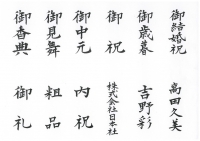 御結婚祝
御歳暮
御祝
御中元
御見舞
御香典
高田久美
吉野彩
株式会社日本社
内祝
粗品
御礼